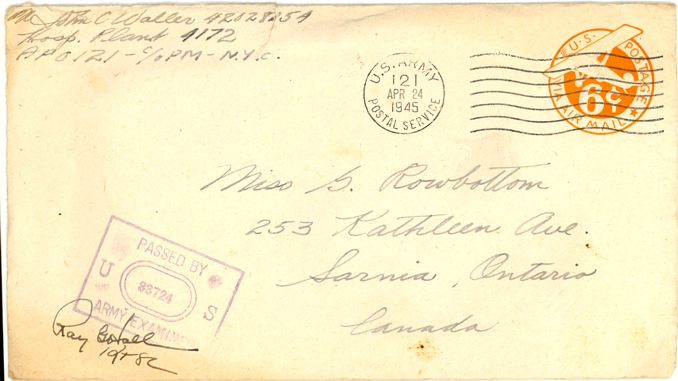 John C Waller 42028254
Hosp. Plant 4172
APO 121 - c/o PM - N.Y.C.
U.S. ARMY
121
APR 24
1945
POSTAL SERVICE
U.S. POSTAGE
6¢
VIA AIR MAIL
Miss G. Rowbottom
253 Kathleen Ave.
Sarnia, Ontario
Canada
PASSED BY
U S
83724
ARMY EXAMINER
Ray